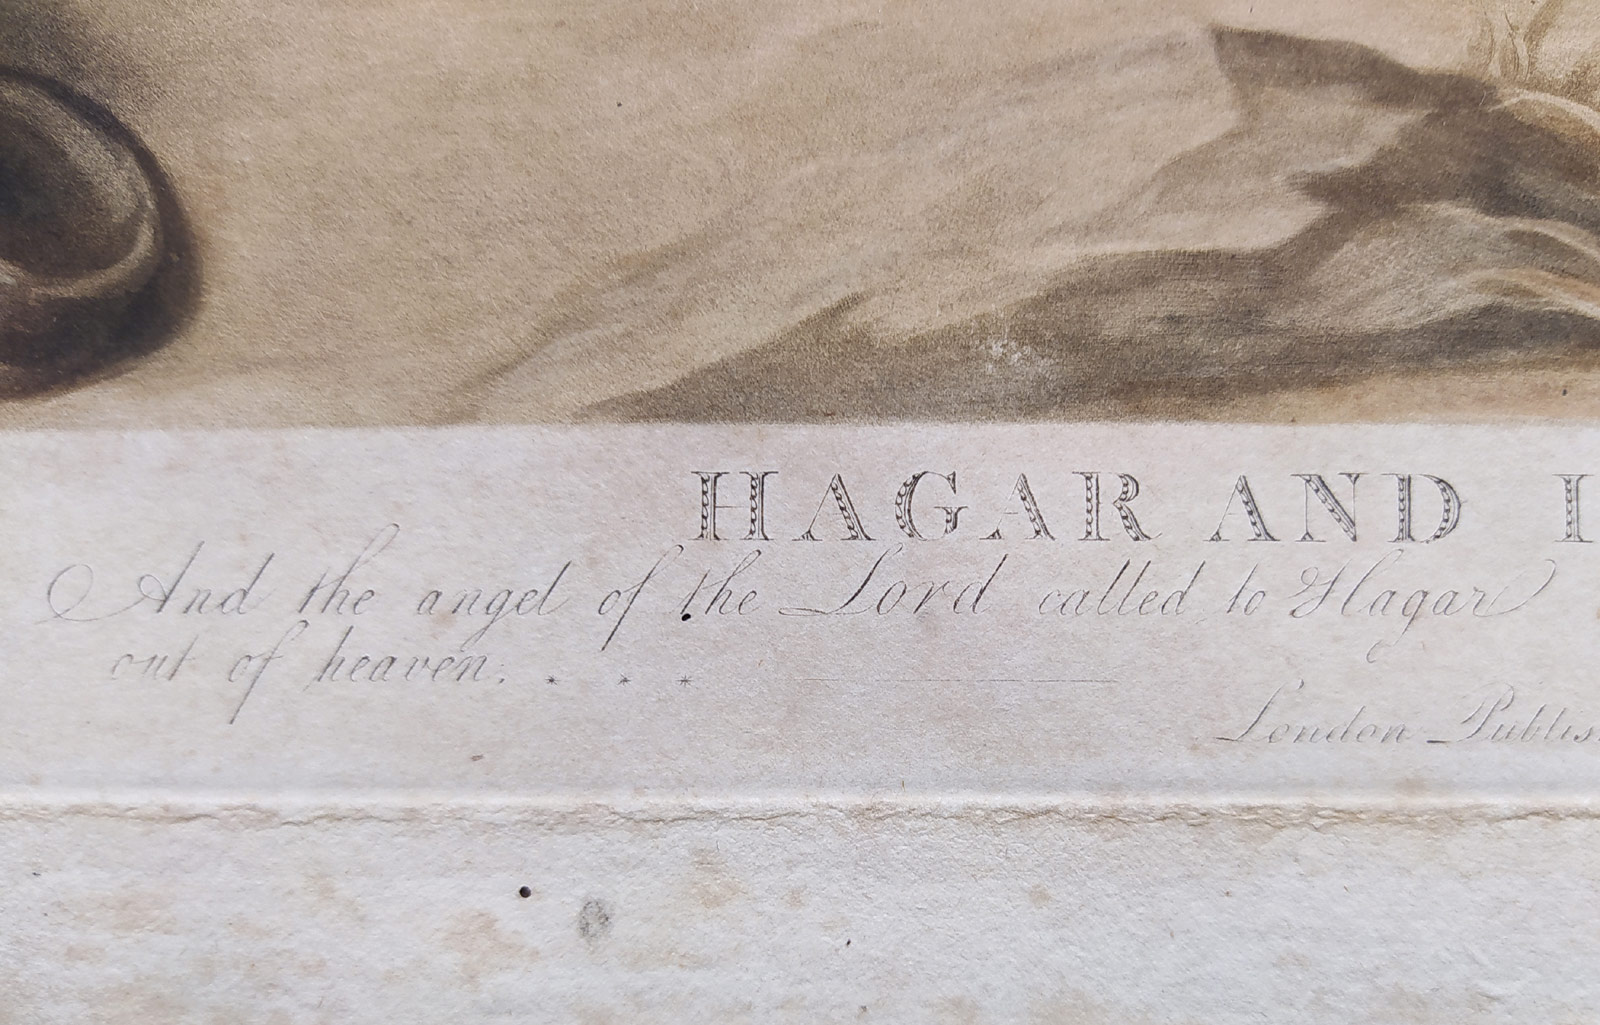 HAGAR AND I
And the angel of the Lord called to Hagar
out of heaven. . . .
London Publis